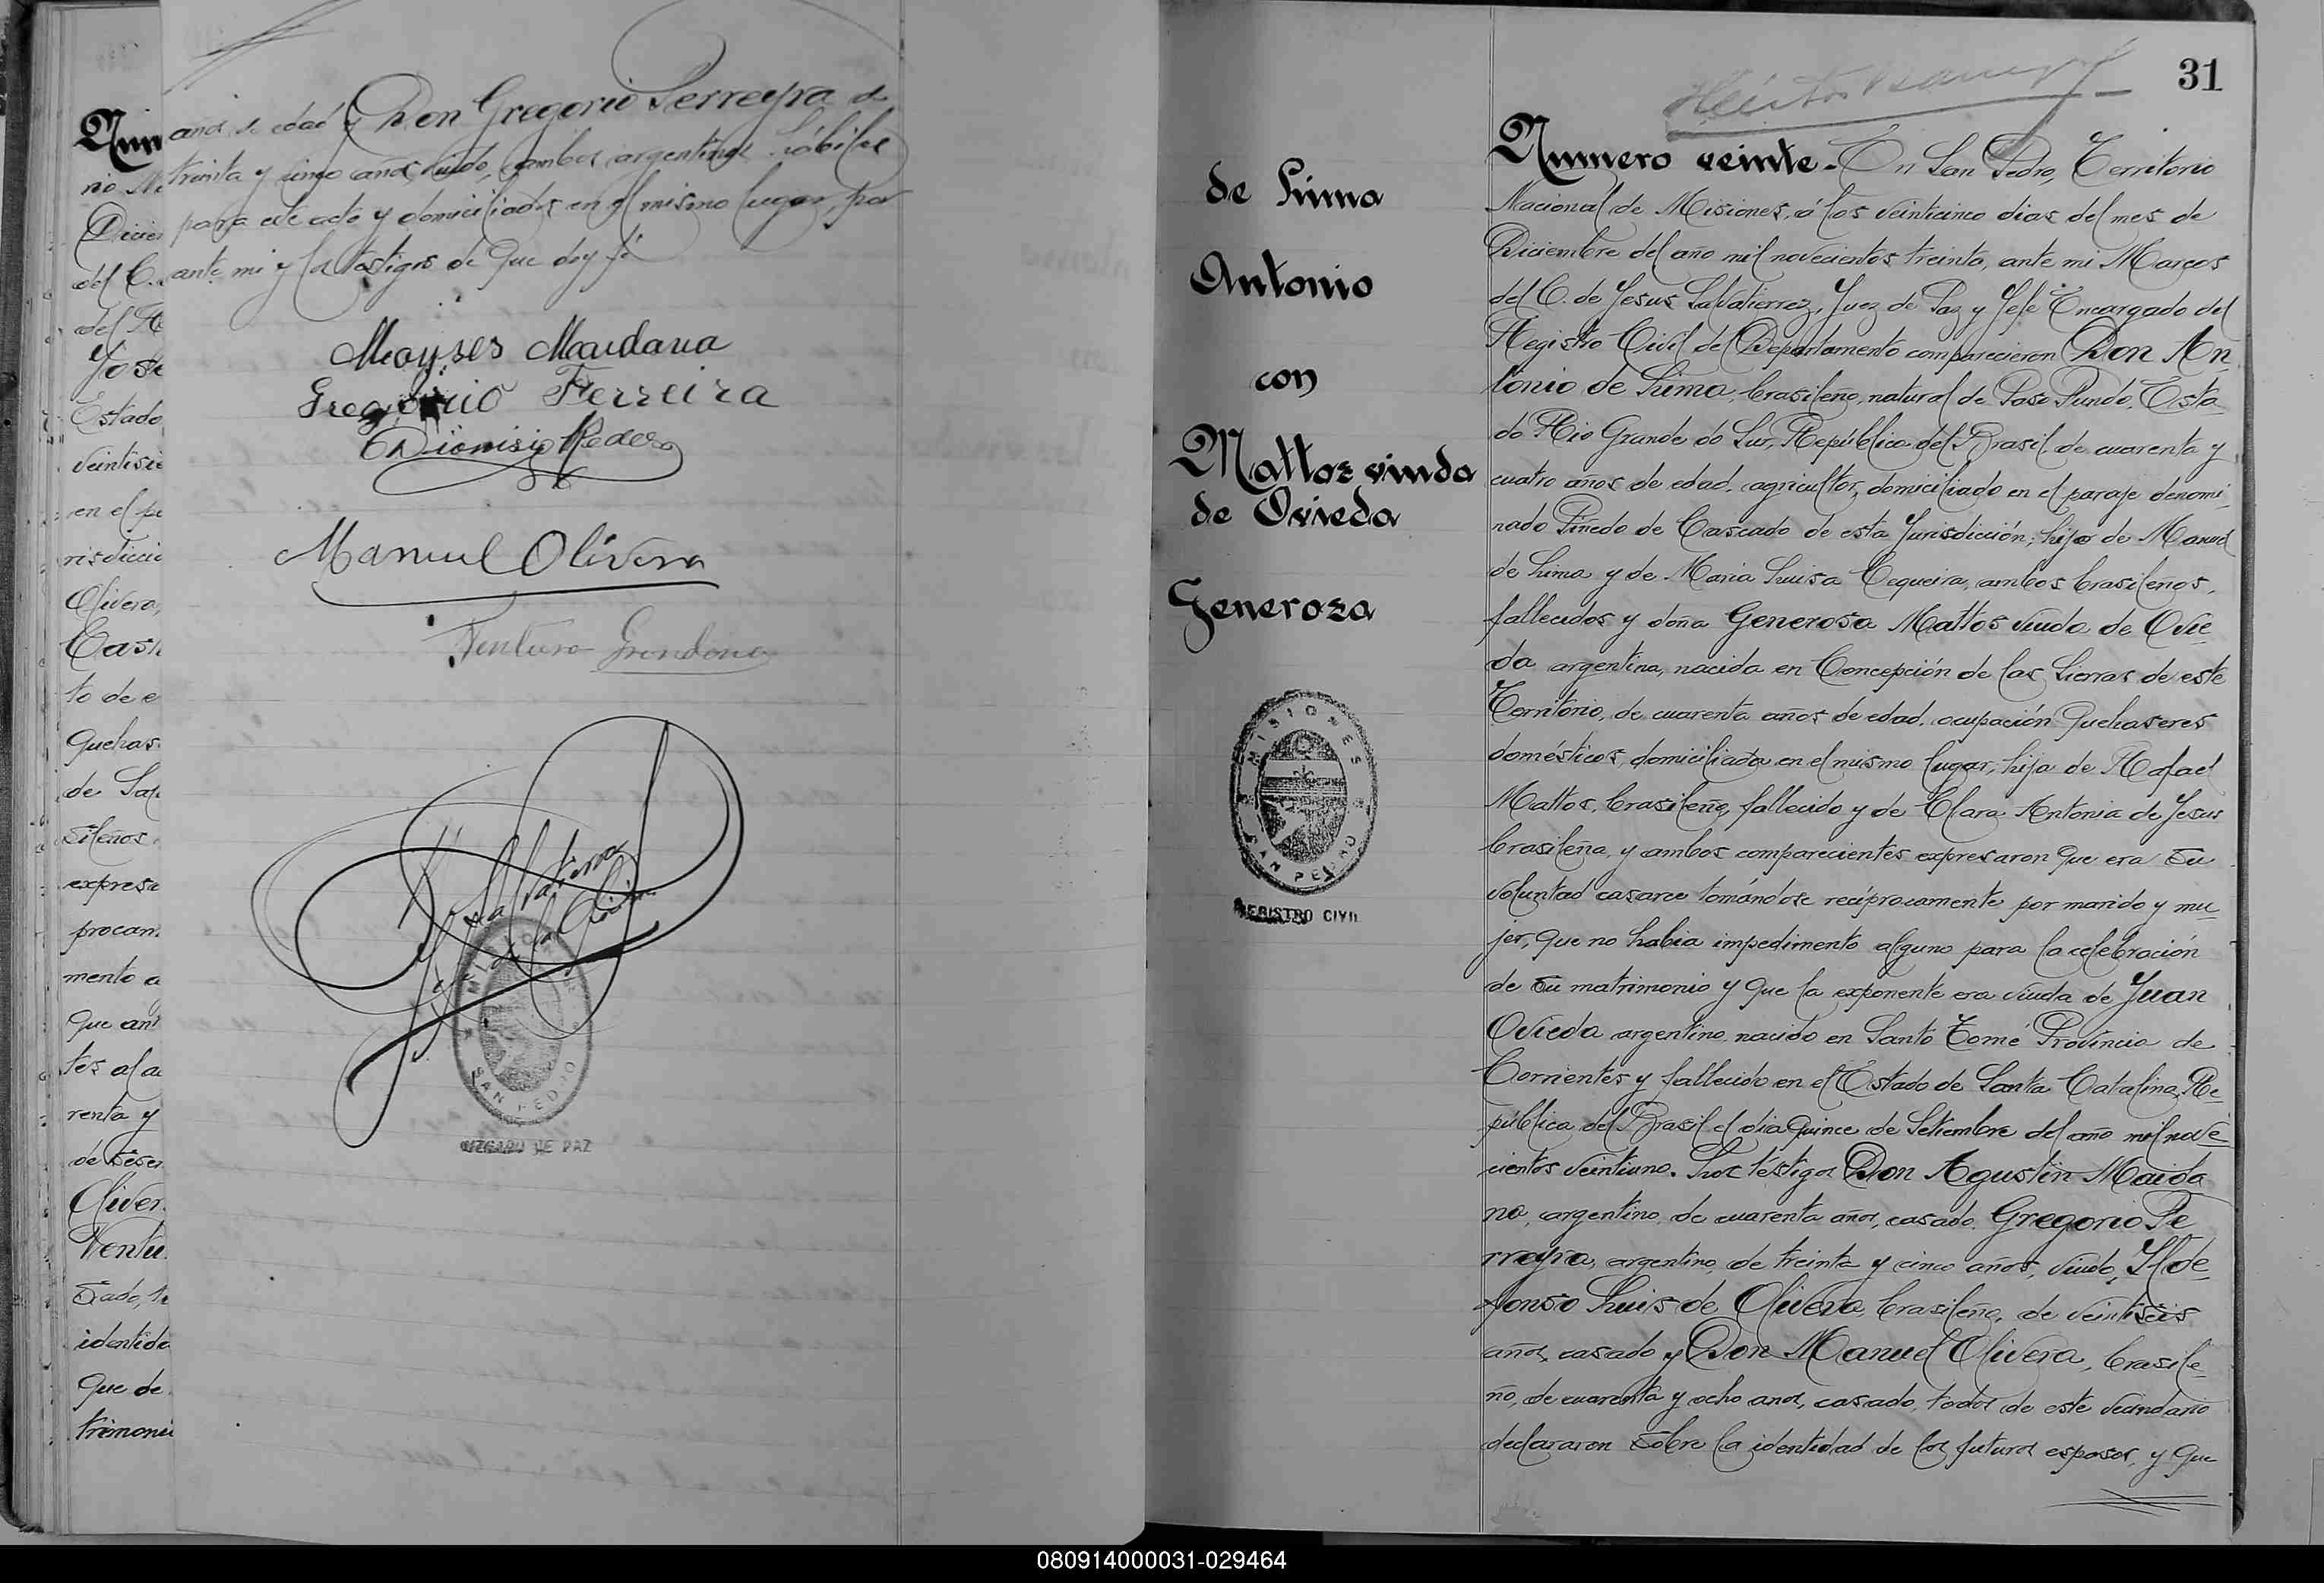 años de edad y Don Gregorio Ferreyra de
treinta y cinco años, viudo, ambos argentinos hábiles
para este acto y domiciliados en el mismo lugar, por
ante mi y los testigos de que doy fé
Moyses Maidana
Gregorio Ferreira
Dionisio
Manuel Olivera
Ventura Grondona
Salvatierra
MISIONES
SAN PEDRO
JUZGADO DE PAZ
Num
nio M
Dicie
del C.
del R
Jose
Estado
veintisie
en el pa
risdicci
Olivera,
Cast
to de e
quehas
de Sa
sileños
expresa
procam
mento a
que ant
tes al a
renta y
de sese
Oliver
Ventu
sado, t
identida
que de
trimoni
31
de Lima
Antonio
con
Mattos viuda
de Ovieda
Generoza
MISIONES
SAN PEDRO
REGISTRO CIVIL
Numero veinte. En San Pedro, Territorio
Nacional de Misiones, á los veinticinco dias del mes de
Diciembre del año mil novecientos treinta, ante mi Marcos
del C. de Jesus Salvatierrez, Juez de Paz y Jefe Encargado del
Registro Civil del Departamento comparecieron Don An
tonio de Lima, brasileño, natural de Paso Fundo, Esta
do Rio Grande do Sur, República del Brasil, de cuarenta y
cuatro años de edad, agricultor, domiciliado en el paraje denomi
nado Piñedo de Cascado de esta Jurisdicción; hijo de Manuel
de Lima y de Maria Luisa Cequeira, ambos brasileños,
fallecidos y doña Generosa Mattos viuda de Ovie
da argentina, nacida en Concepción de las Sierras de este
Territorio, de cuarenta años de edad, ocupación quehaseres
domésticos, domiciliada en el mismo lugar, hija de Rafael
Mattos, brasileño, fallecido y de Clara Antonia de Jesus
brasileña, y ambos comparecientes expresaron que era su
voluntad casarce tomándose recíprocamente por marido y mu
jer, que no habia impedimento alguno para la celebración
de su matrimonio y que la exponente era viuda de Juan
Ovieda argentino, nacido en Santo Tomé Provincia de
Corrientes y fallecido en el Estado de Santa Catalina, Re
pública del Brasil el dia quince de Setiembre del año mil nove
cientos veintiuno. Los téstigos Don Agustin Maida
na, argentino, de cuarenta años, casado, Gregorio Fe
rreyra, argentino, de treinta y cinco años, viudo, Ilde
fonso Luis de Olivera, brasileño, de veintiseis
años, casado y Don Manuel Olivera, brasile
ño, de cuarenta y ocho anos, casado, todos de este vecindario
declararon sobre la identidad de los futuros esposos, y que
080914000031-029464